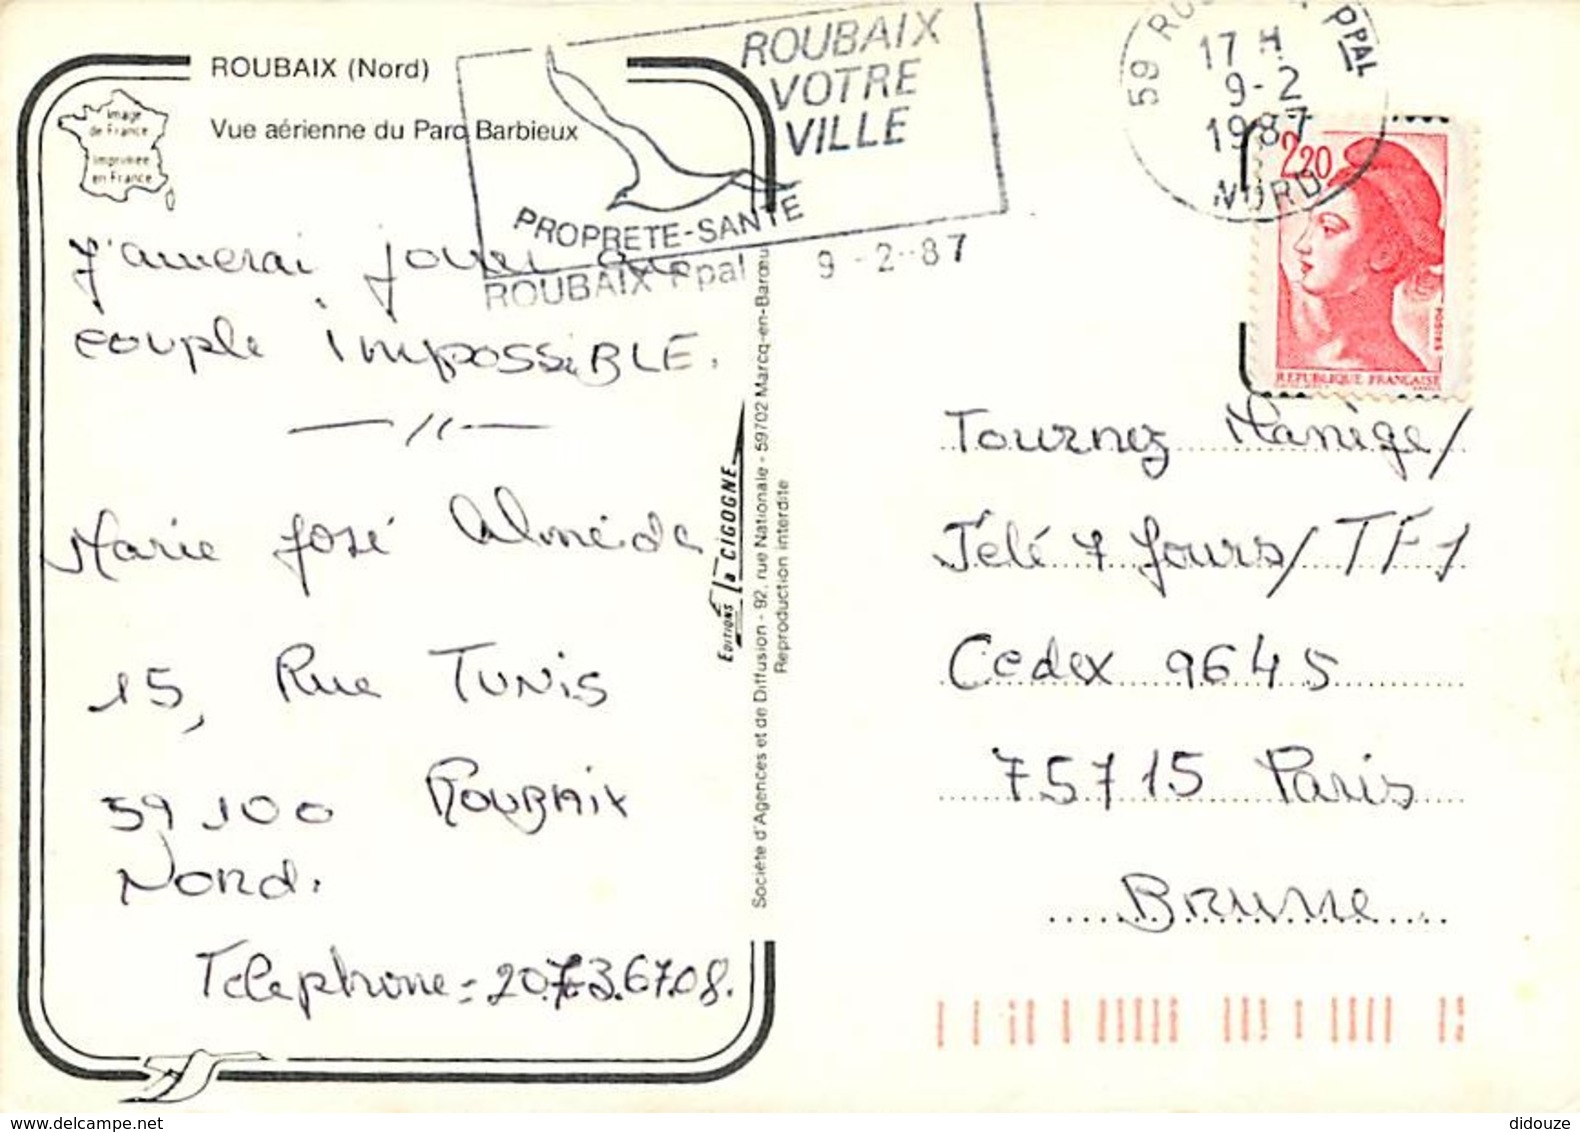 ROUBAIX (Nord)
Vue aérienne du Parc Barbieux
Image
de France
Imprimée
en France
ROUBAIX
VOTRE
VILLE
PROPRETE-SANTE
ROUBAIX Ppal 9-2-87
59 PPAL
17 H
9-2
1987
NORD
2,20
POSTES
REPUBLIQUE FRANÇAISE
J'amerai jouer au
couple impossiBLE.
Marie José Almeida
15, Rue Tunis
59 100 Roubaix
Nord.
Telephone = 20.73.67.08.
EDITIONS la CIGOGNE
Société d'Agences et de Diffusion - 92, rue Nationale - 59702 Marcq-en-Barœul
Reproduction interdite
Tournez Manège/
Télé 7 Jours/TF1
Cedex 9645
75715 Paris
Brune
www.delcampe.net
didouze